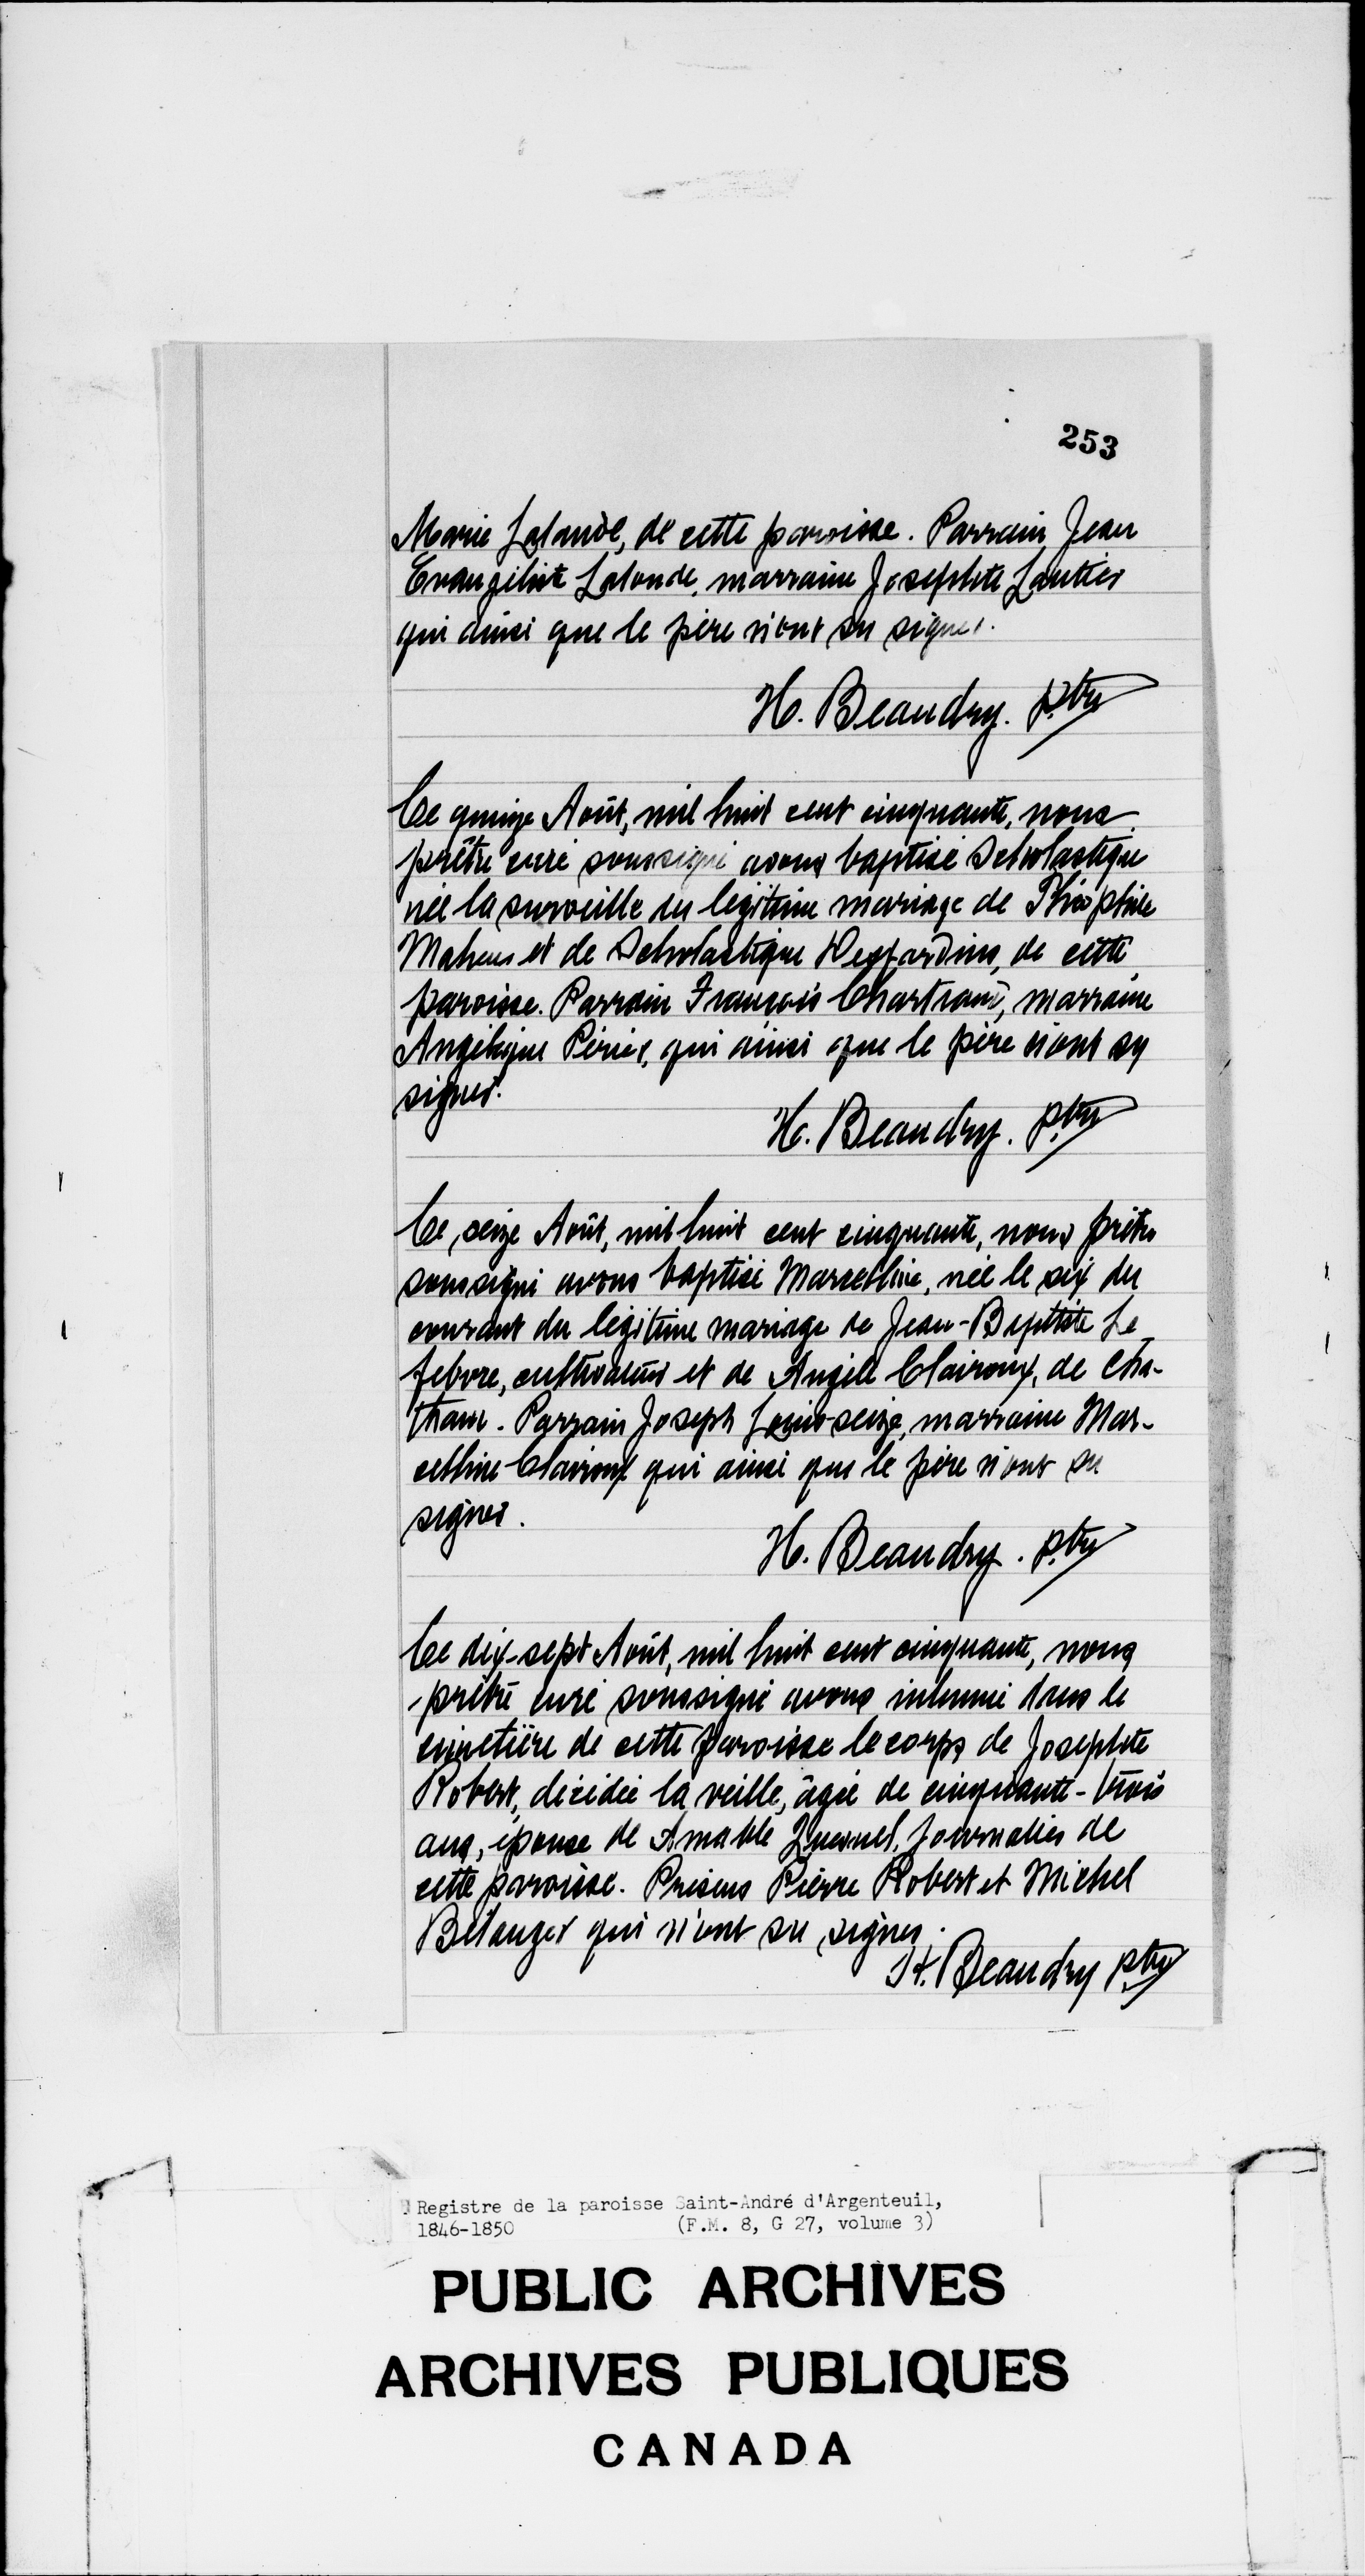 253
Marie Lalande, de cette paroisse. Parrain Jean
Evangéliste Lalonde, marraine Josephte Lautier
qui ainsi que le père n'ont su signer.
H. Beaudry. ptre
Ce quinze Août, mil huit cent cinquante, nous
prêtre curé soussigné avons baptisé Scholastique
née la surveille du légitime mariage de Théophile
Maheus et de Scholastique Desjardins, de cette
paroisse. Parrain François Chartrand, marraine
Angélique Périer, qui ainsi que le père n'ont su
signer.
H. Beaudry. ptre
Ce, seize Août, mil huit cent cinquante, nous prêtre
soussigné avons baptisé Marcelline, née le six du
courant du légitime mariage de Jean-Baptiste Le
febvre, cultivateur et de Angèle Clairoux, de Cha-
tham. Parrain Joseph Louis-seize, marraine Mar-
celline Clairoux qui ainsi que le père n'ont su
signer.
H. Beaudry. ptre
Ce dix-sept Août, mil huit cent cinquante, nous
prêtre curé soussigné avons inhumé dans le
cimetière de cette paroisse le corps de Josephte
Robert, décédée la veille, âgée de cinquante-trois
ans, épouse de Amable Quesnel, journalier de
cette paroisse. Présens Pierre Robert et Michel
Bélanger qui n'ont su signer.
H. Beaudry ptre
Registre de la paroisse Saint-André d'Argenteuil,
1846-1850 (F.M. 8, G 27, volume 3)
PUBLIC ARCHIVES
ARCHIVES PUBLIQUES
CANADA